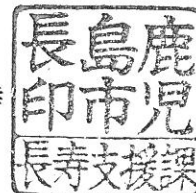 鹿児
島市
長印
長寿支援課